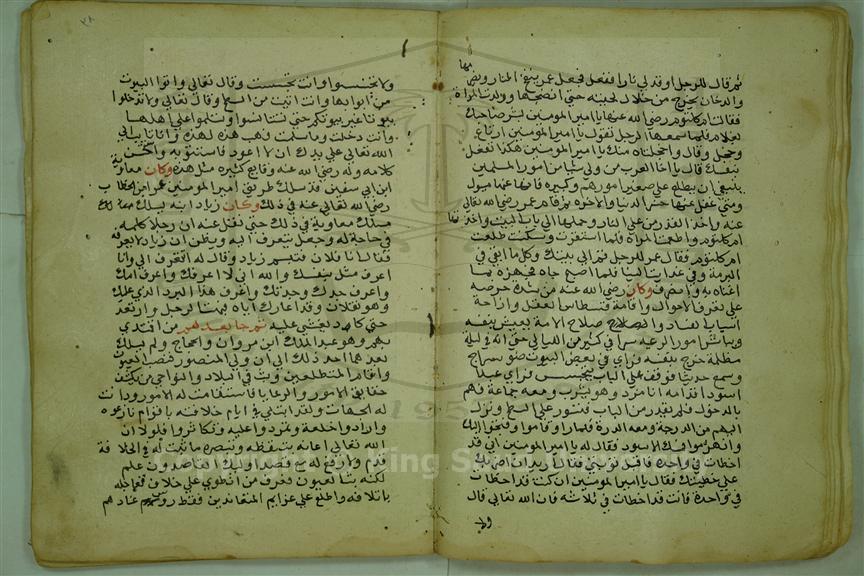 ثم قال للرجل اوقد لي نارا ففعل فجعل عمر ينفخ النار ويضرمها
والدخان يخرج من خلال لحيته حتى انضجها وولدت المراة
فقالت ام كلثوم رضي الله عنها يا امير المومنين بشر صاحبك
بغلام فلما سمعها الرجل تقول يا امير المومنين ارتاع
وخجل وقال واخجلتاه منك يا امير المومنين هكذا تفعل
بنفسك قال يا اخا العرب من ولي شيا من امور المسلمين
ينبغي ان يطلع على صغير امورهم وكبيره فانه عنها مسول
ومتى غفل عنها خسر الدنيا والاخرة ثم قام عمر رضي الله تعالى
عنه واخذ القدر من على النار وحملها الى باب البيت واخذتها
ام كلثوم واطعمت المراة فلما استقرت وسكنت طلعت
ام كلثوم فقال عمر للرجل قم الى بيتك وكل ما بقي في
البرمة وفي غد ائت الينا فلما اصبح جاه فجهزه بما
اغناه به وانصرف وكان رضي الله عنه من شدة حرصه
على تعرف الاحوال واقامة قسطاس العدل وازاحة
اسباب الفساد واصلاح صلاح الامة يعس بنفسه
ويباشر امور الرعية سرا في كثير من الليالي حتى انه في ليلة
مظلمة خرج بنفسه فراي في بعض البيوت ضو سراج
وسمع حديثا فوقف على الباب يتجسس فراي عبدا
اسود قدامه انا مزر وهو يشرب ومعه جماعة فهم
بالدخول فلم يقدر من الباب فتسور على السطح ونزل
اليهم من الدرجة ومعه الدرة فلما راوه قاموا وفتحوا الباب
وانهزموا فمسك الاسود فقال له يا امير المومنين اني قد
اخطات في واحدة فاقبل توبتي فقال اريد ان اضربك
على خطيتك فقال يا امير المومنين ان كنت قد اخطات
في واحدة فانت قد اخطات في ثلاثة فان الله تعالى قال
ولا
٣٨
ولا تجسسوا وانت تجسست وقال تعالى واتوا البيوت
من ابوابها وانت اتيت من السطح وقال تعالى ولا تدخلوا
بيوتا غير بيوتكم حتى تستانسوا وتسلموا على اهلها
وانت دخلت وما سلمت فهب هذه لهذه وانا تايب الى
الله تعالى على يديك ان لا اعود فاستتوبه واستحسن
كلامه وله رضي الله عنه وقايع كثيرة مثل هذه وكان معاوية
ابن ابي سفين قد سلك طريق امير المومنين عمر ابن الخطاب
رضي الله تعالى عنه في ذلك وكان زياد ابنه يسلك
مسلك معاوية في ذلك حتى نقل عنه ان رجلا كلمه
في حاجة له وجعل يتعرف اليه ويظن ان زياد لا يعرفه
فقال انا فلان فتبسم زياد وقال له اتتعرف الي وانا
اعرف منك بنفسك والله اني لاعرفك واعرف امك
واعرف جدك وجدتك واعرف هذا البرد الذي عليك
وهو لفلان وقد اعارك اياه فبهت الرجل وارتعد
حتى كاد يغشى عليه ثم جا بعدهم من اقتدى
بهم وهو عبد الملك ابن مروان والحجاج ولم يسلك
بعدهما احد ذلك الى ان ولي المنصور فنصب العيون
واقام المتطلعين وبث في البلاد والنواحي من يكشف
حقايق الامور والرعايا فاستقامت له الامور ودانت
له الجهات ولقد ابتلي في ايام خلافته باقوام نازعوه
وارادوا خلعه وتمردوا عليه وتكاثروا فلولا ان
الله تعالى اعانه بتيقظه وتبصره ما ثبت له في الخلافة
قدم ولا رفع له مع قصد اوليك القاصدون علم
لكنه بث العيون فعرف من انطوى على خلاف فعاجله
باتلافه واطلع على عزايم المعاندين فقط روس عنادهم